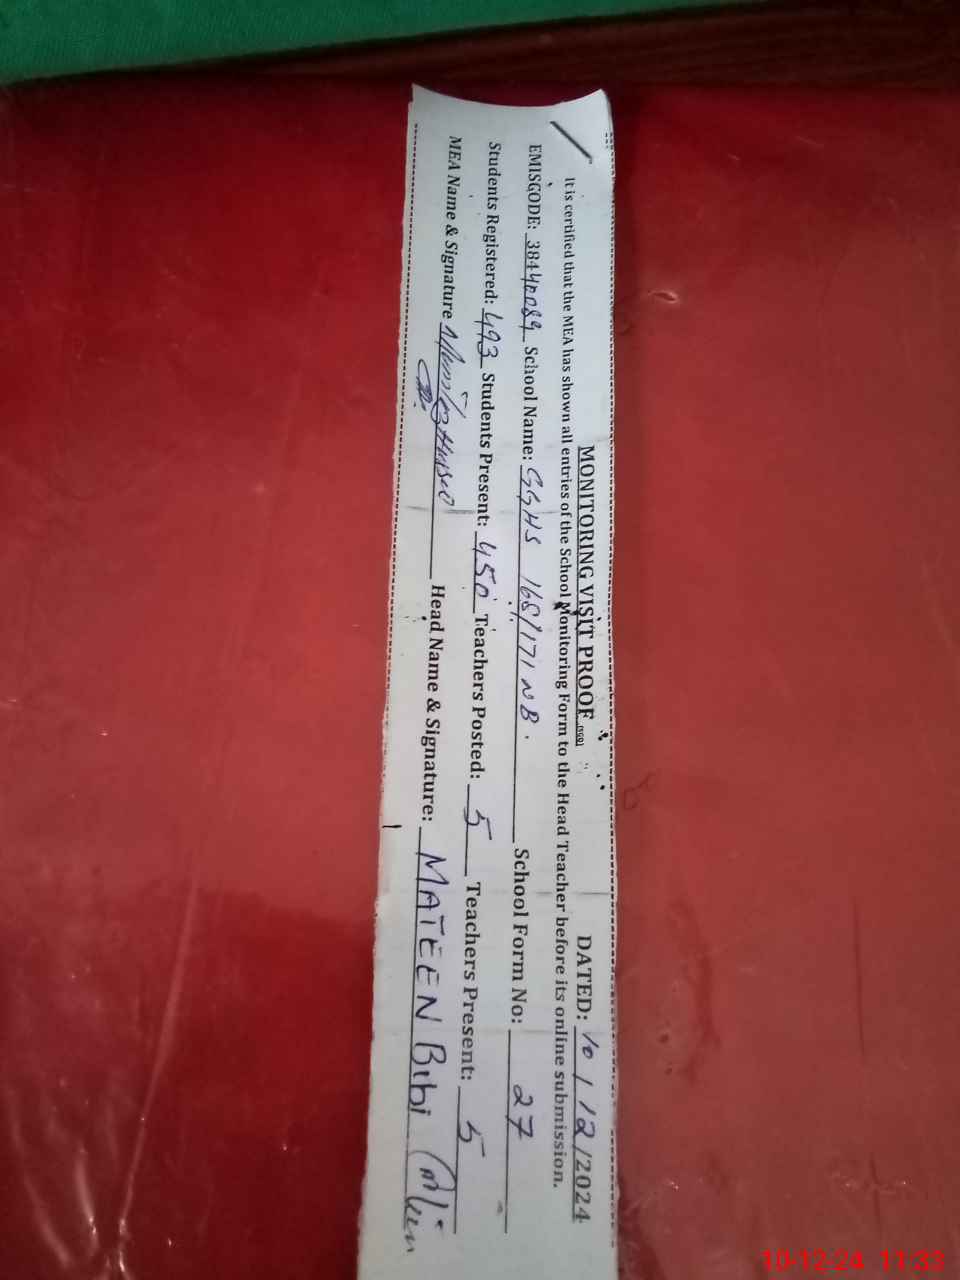 MONITORING VISIT PROOF (SGD) DATED: 10/12/2024
It is certified that the MEA has shown all entries of the School Monitoring Form to the Head Teacher before its online submission.
EMISGODE: 38440089 School Name: GGHS 168/171 NB. School Form No: 27
Students Registered: 493 Students Present: 450 Teachers Posted: 5 Teachers Present: 5
MEA Name & Signature Head Name & Signature: MATEEN Bibi
10-12-24 11:33